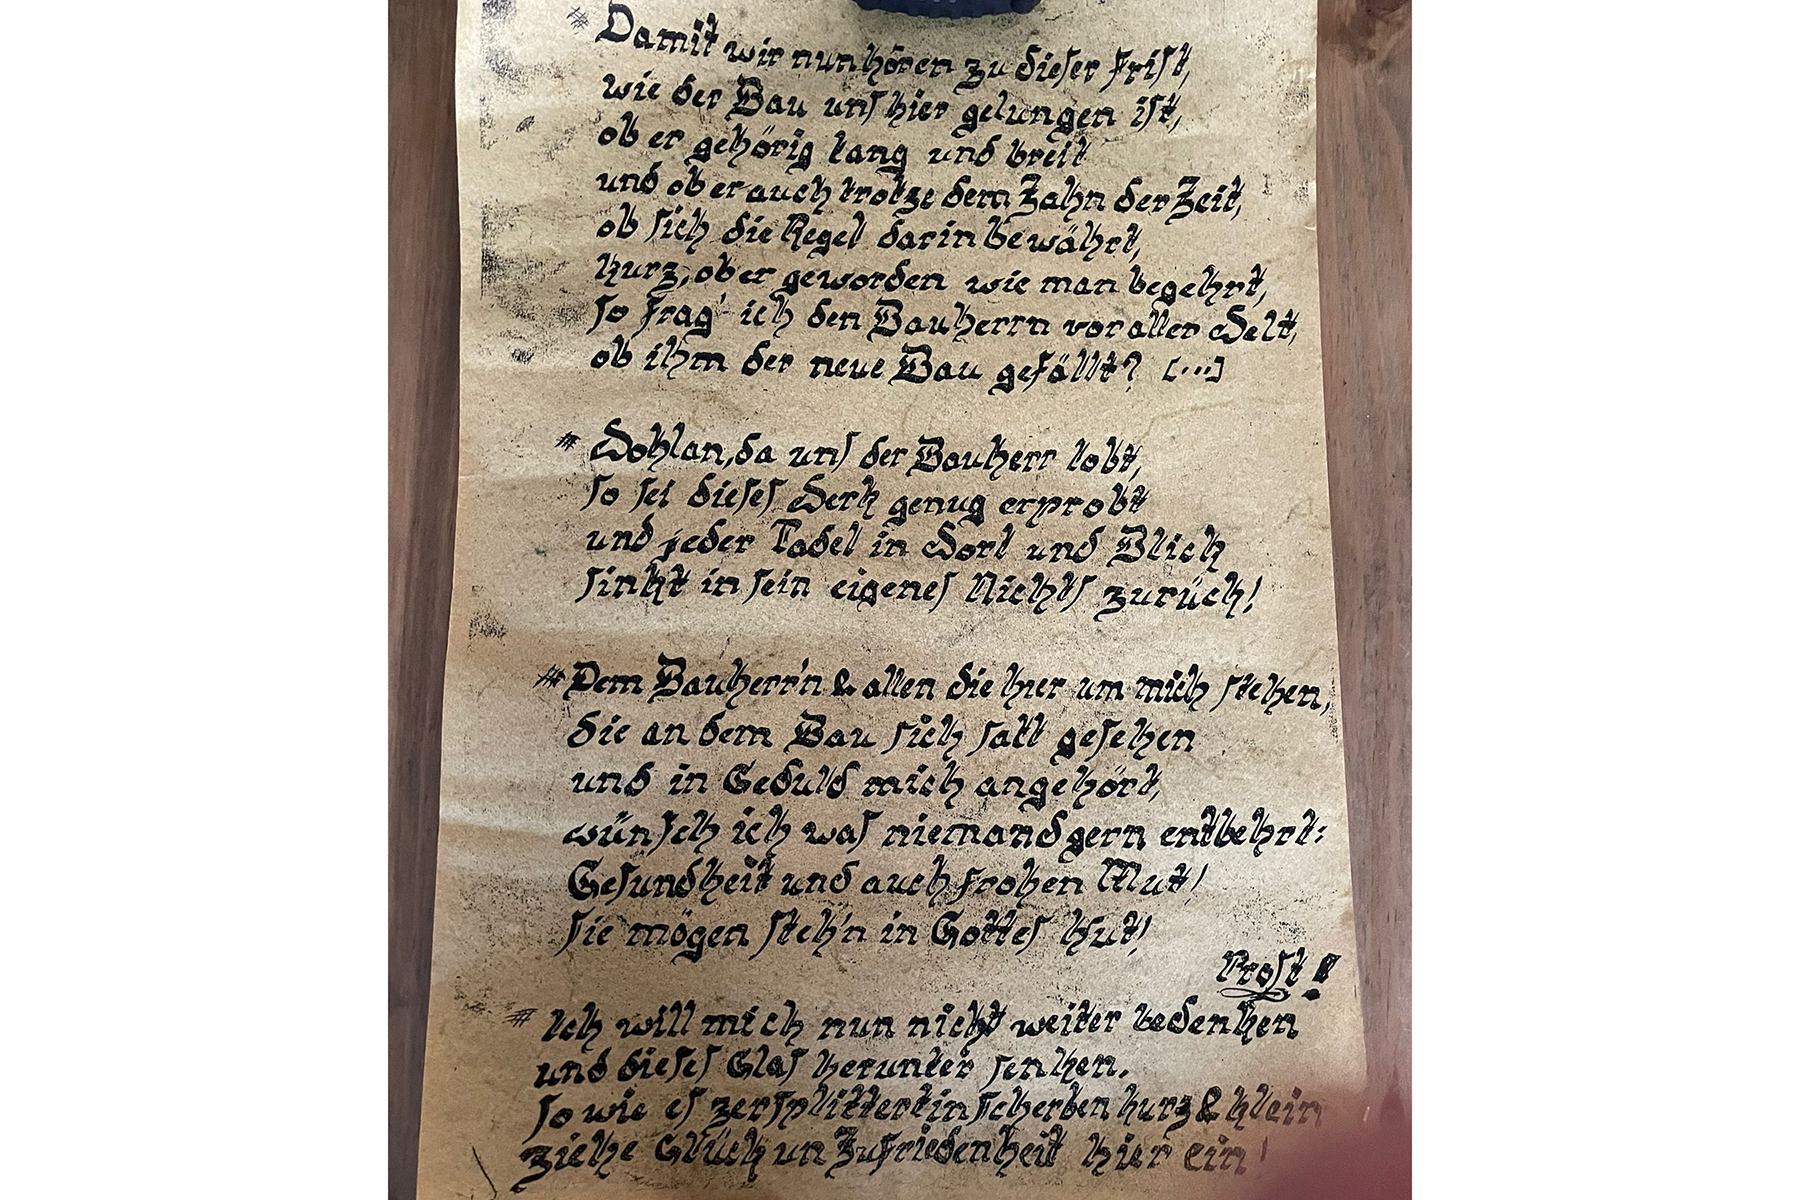 # Damit wir nun hören zu dieser Frist,
wie der Bau uns hier gelungen ist,
ob er gehörig lang und breit
und ob er auch trotze dem Zahn der Zeit,
ob sich die Regel darin bewährt,
kurz, ob er geworden wie man begehrt,
so frag' ich den Bauherrn vor aller Welt,
ob ihm der neue Bau gefällt? [...]
# Wohlan, da uns der Bauherr lobt,
so sei dieses Werk genug erprobt
und jeder Tadel in Wort und Blick
sinkt in sein eigenes Nichts zurück!
# Dem Bauherr'n & allen die hier um mich stehen,
die an dem Bau sich satt gesehen
und in Geduld mich angehört,
wünsch ich was niemand gern entbehrt:
Gesundheit und auch frohen Mut!
sie mögen steh'n in Gottes Hut!
Prost!
# Ich will mich nun nicht weiter bedenken
und dieses Glas herunter senken.
so wie es zersplittert in Scherben kurz & klein
ziehe Glück un Zufriedenheit hier ein!